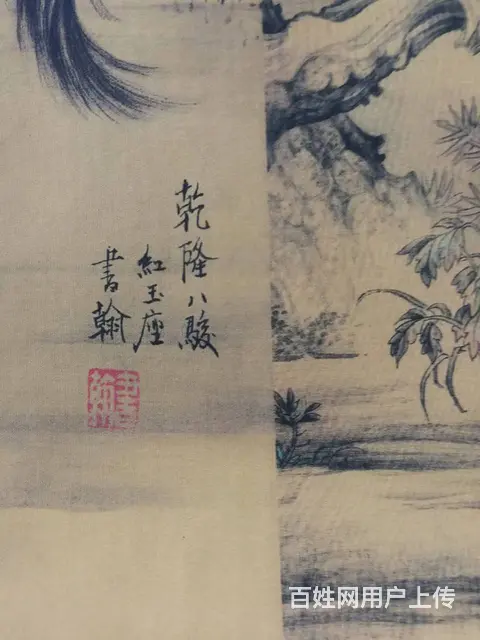 乾隆八駿
紅玉座
書翰
書翰
百姓网用户上传